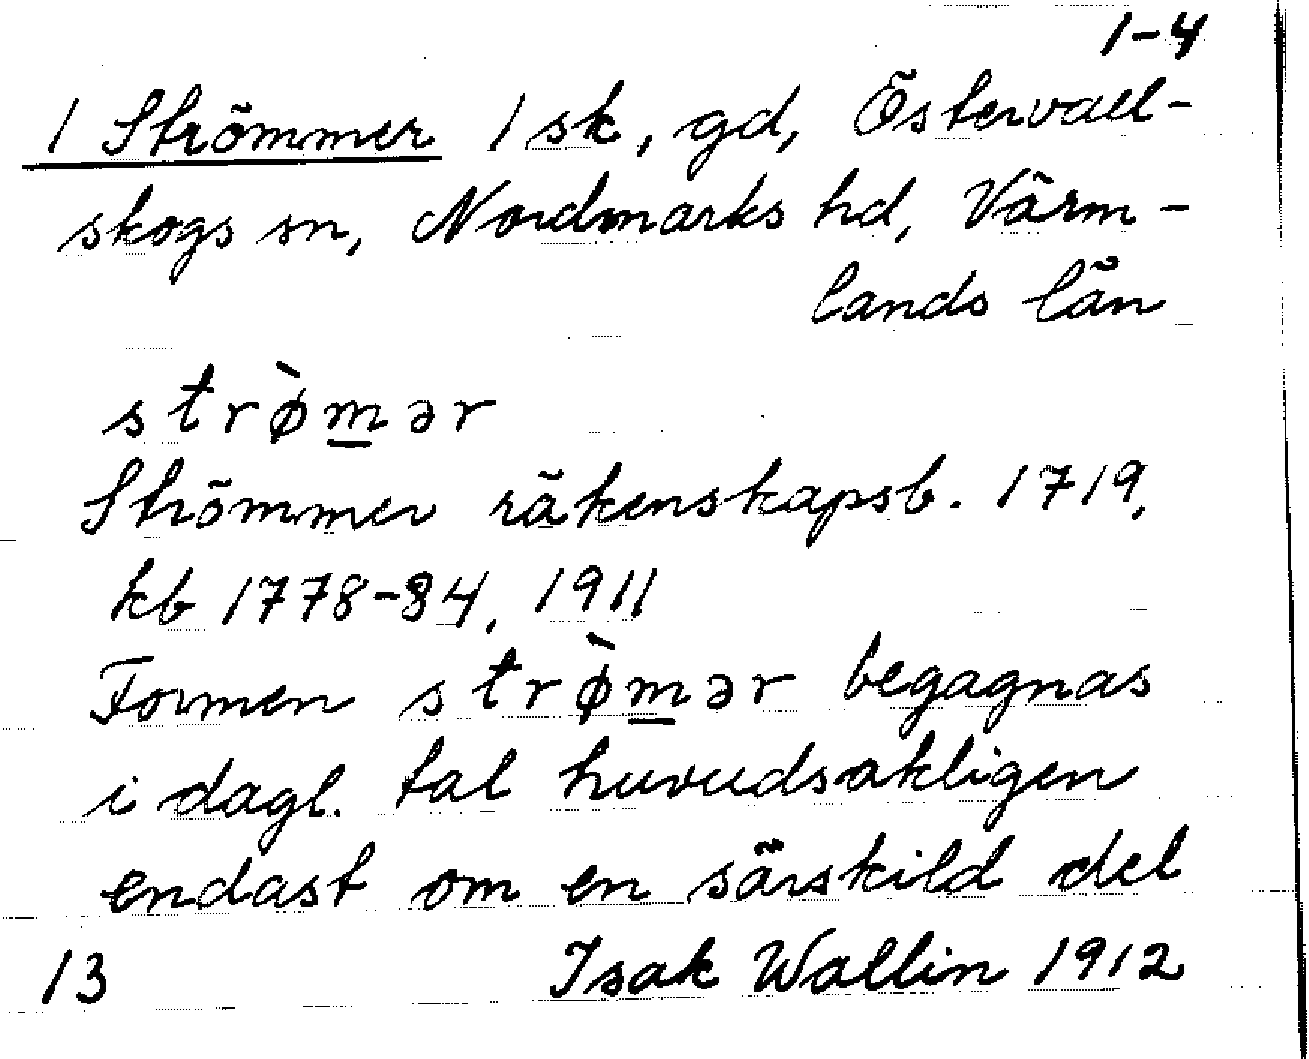 1-4
1 Strömmer 1 sk, gd, Östervall-
skogs sn, Nordmarks hd, Värm-
lands län
strø̀m̲ər
Strömmer räkenskapsb. 1719,
kb 1778-84, 1911
Formen strø̀m̲ər begagnas
i dagl. tal huvudsakligen
endast om en särskild del
13 Isak Wallin 1912